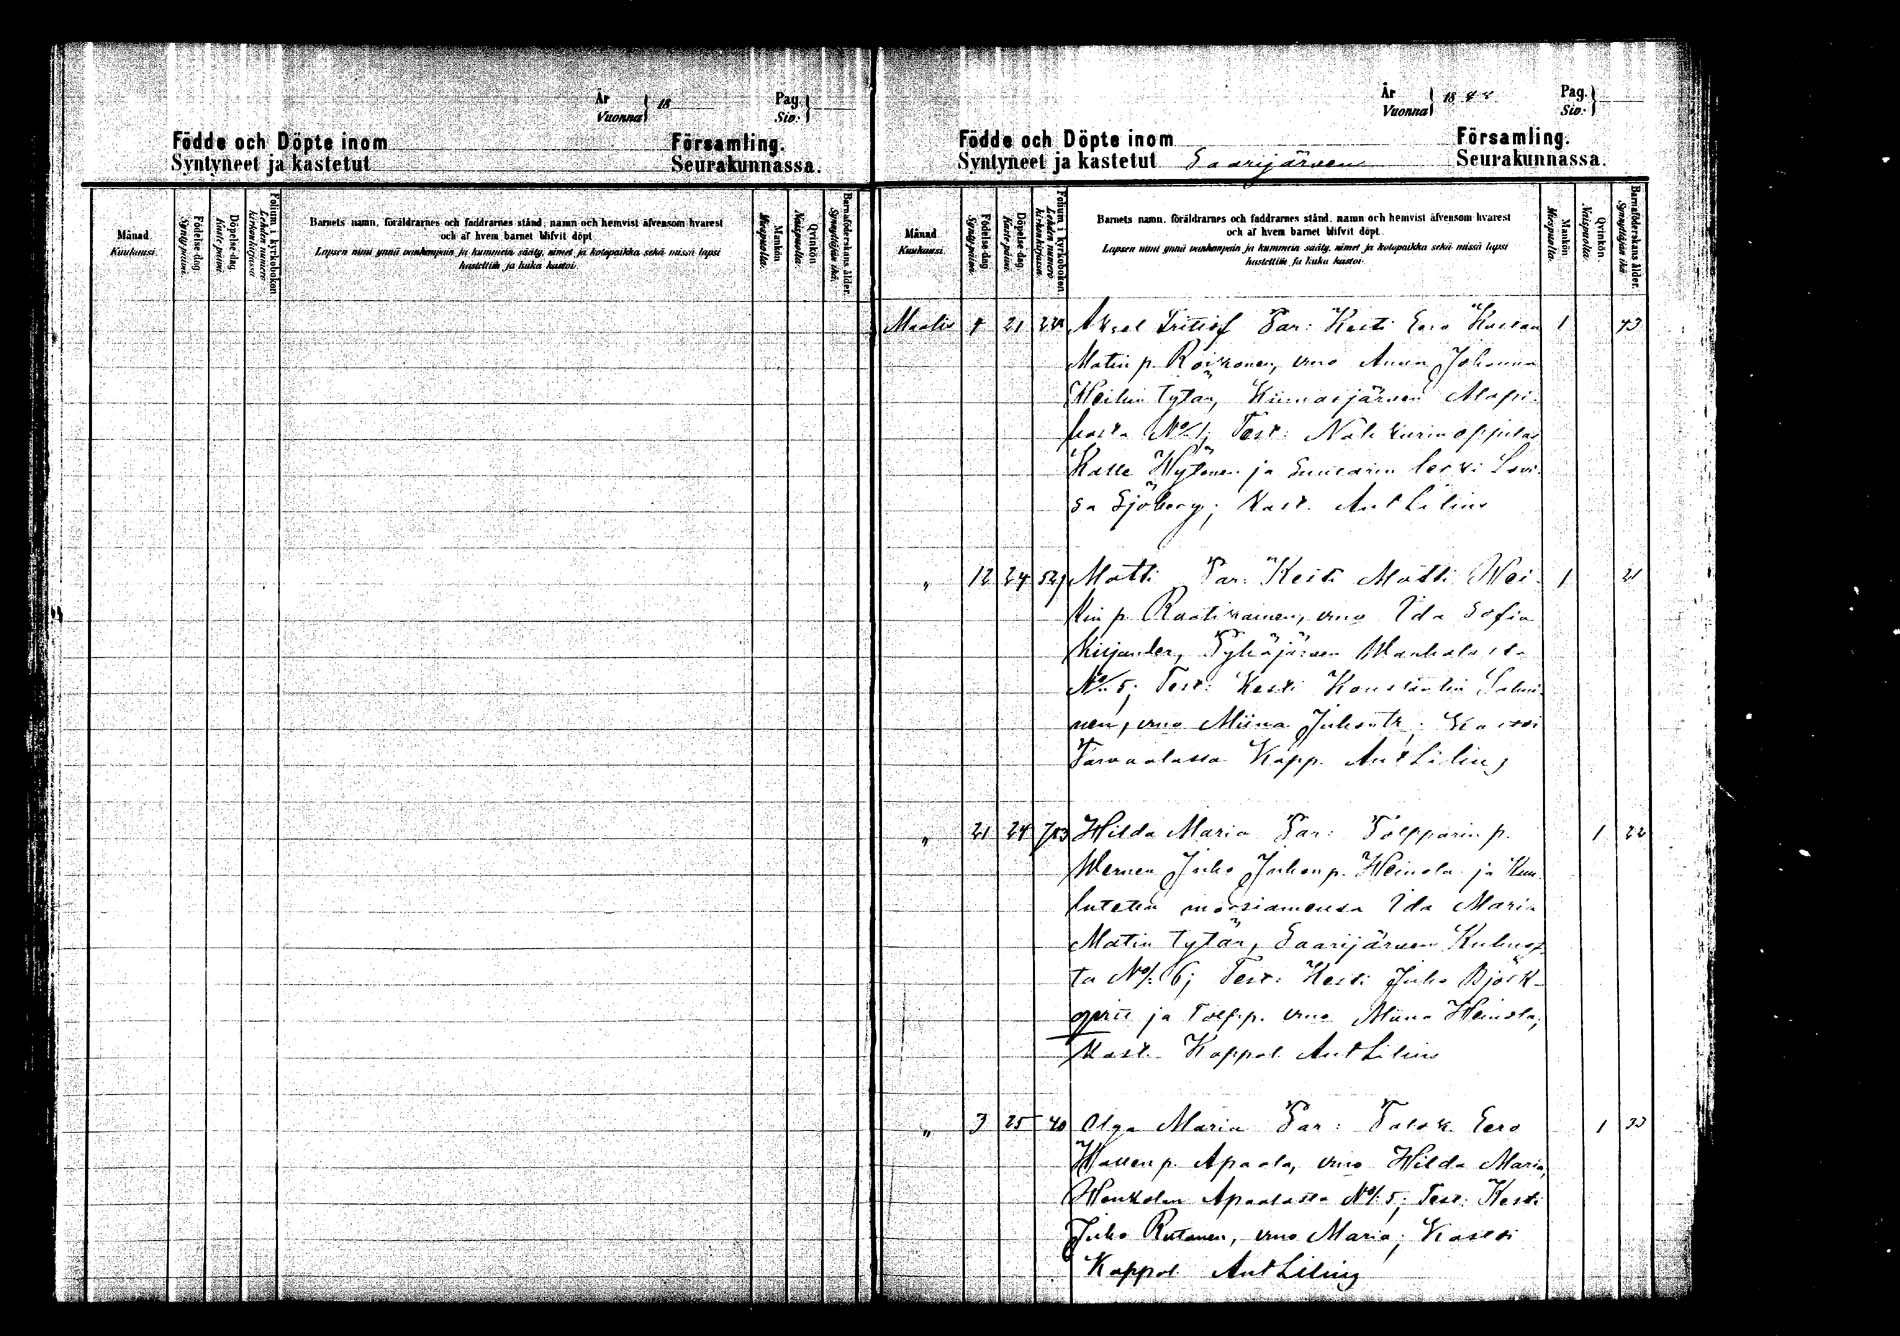 År
Vuonna } 18
Pag.
Siv. }
Födde och Döpte inom Församling.
Syntyneet ja kastetut Seurakunnassa.
Månad.
Kuukausi.
Födelse-dag.
Synty-päivä.
Döpelse-dag.
Kaste-päivä
Folium i kyrkoboken
Lehden numero
kirkonkirjassa
Barnets namn, föräldrarnes och faddrarnes stånd, namn och hemvist äfvensom hvarest
och af hvem barnet blifvit döpt.
Lapsen nimi ynnä vanhempain ja kummein sääty, nimet ja kotopaikka sekä missä lapsi
kastettiin ja kuka kastoi.
Mankön
Miespuolia.
Qvinkön.
Naispuolia.
Barnaföderskans ålder.
Synnyttäjän ikä.
År
Vuonna } 1888
Pag.
Siv. }
Födde och Döpte inom Församling.
Syntyneet ja kastetut Saarijärven Seurakunnassa.
Månad.
Kuukausi.
Födelse-dag.
Synty-päivä.
Döpelse-dag.
Kaste-päivä.
Folium i kyrkoboken.
Lehden numero
kirkonkirjassa.
Barnets namn, föräldrarnes och faddrarnes stånd, namn och hemvist äfvensom hvarest
och af hvem barnet blifvit döpt.
Lapsen nimi ynnä vanhempain ja kummein sääty, nimet ja kotopaikka sekä missä lapsi
kastettiin ja kuka kastoi.
Mankön
Miespuolia.
Qvinkön.
Naispuolia.
Barnaföderskans ålder.
Synnyttäjän ikä.
Maalis 21 Aksel Fritiof Van: Kesti Eero Kustaa 1 43
Matin p. Roikonen, vmo Anna Johanna
Heikin tytär, Kiimasjärven Alapii-
hasta No 1; Test:
Kalle Hytönen ja leski Lovi-
sa Sjöberg; Kast. Ant Lilius
" 12 24 529 Matti Van: Kesti Matti Hei- 1 21
kin p. Raatikainen, vmo Ida Sofia
Kiljander, Pyhäjärven
No 5; Test: Kesti Konstantin Salmi-
nen, vmo Miina Juhontr;
Tarvaalassa Kapp. Ant Lilius
" 21 24 713 Hilda Maria Van: Tolpparin p. 1 22
Werner Juho Juhonp. Heinola ja Kuu-
lutettu morsiamensa Ida Maria
Matin tytär, Saarijärven
No 6; Test: Kesti Juho Björk-
qvist ja Tolp.p. vmo Miina Heinola;
Kast. Kappal. Ant Lilius
" 3 25 40 Olga Maria Van: Talok. Eero 1 33
p. Apaala, vmo Hilda Maria,
Apaalasta No 5; Test: Kesti
Juho Rutanen, vmo Maria; Kastoi
Kappal. Ant Lilius